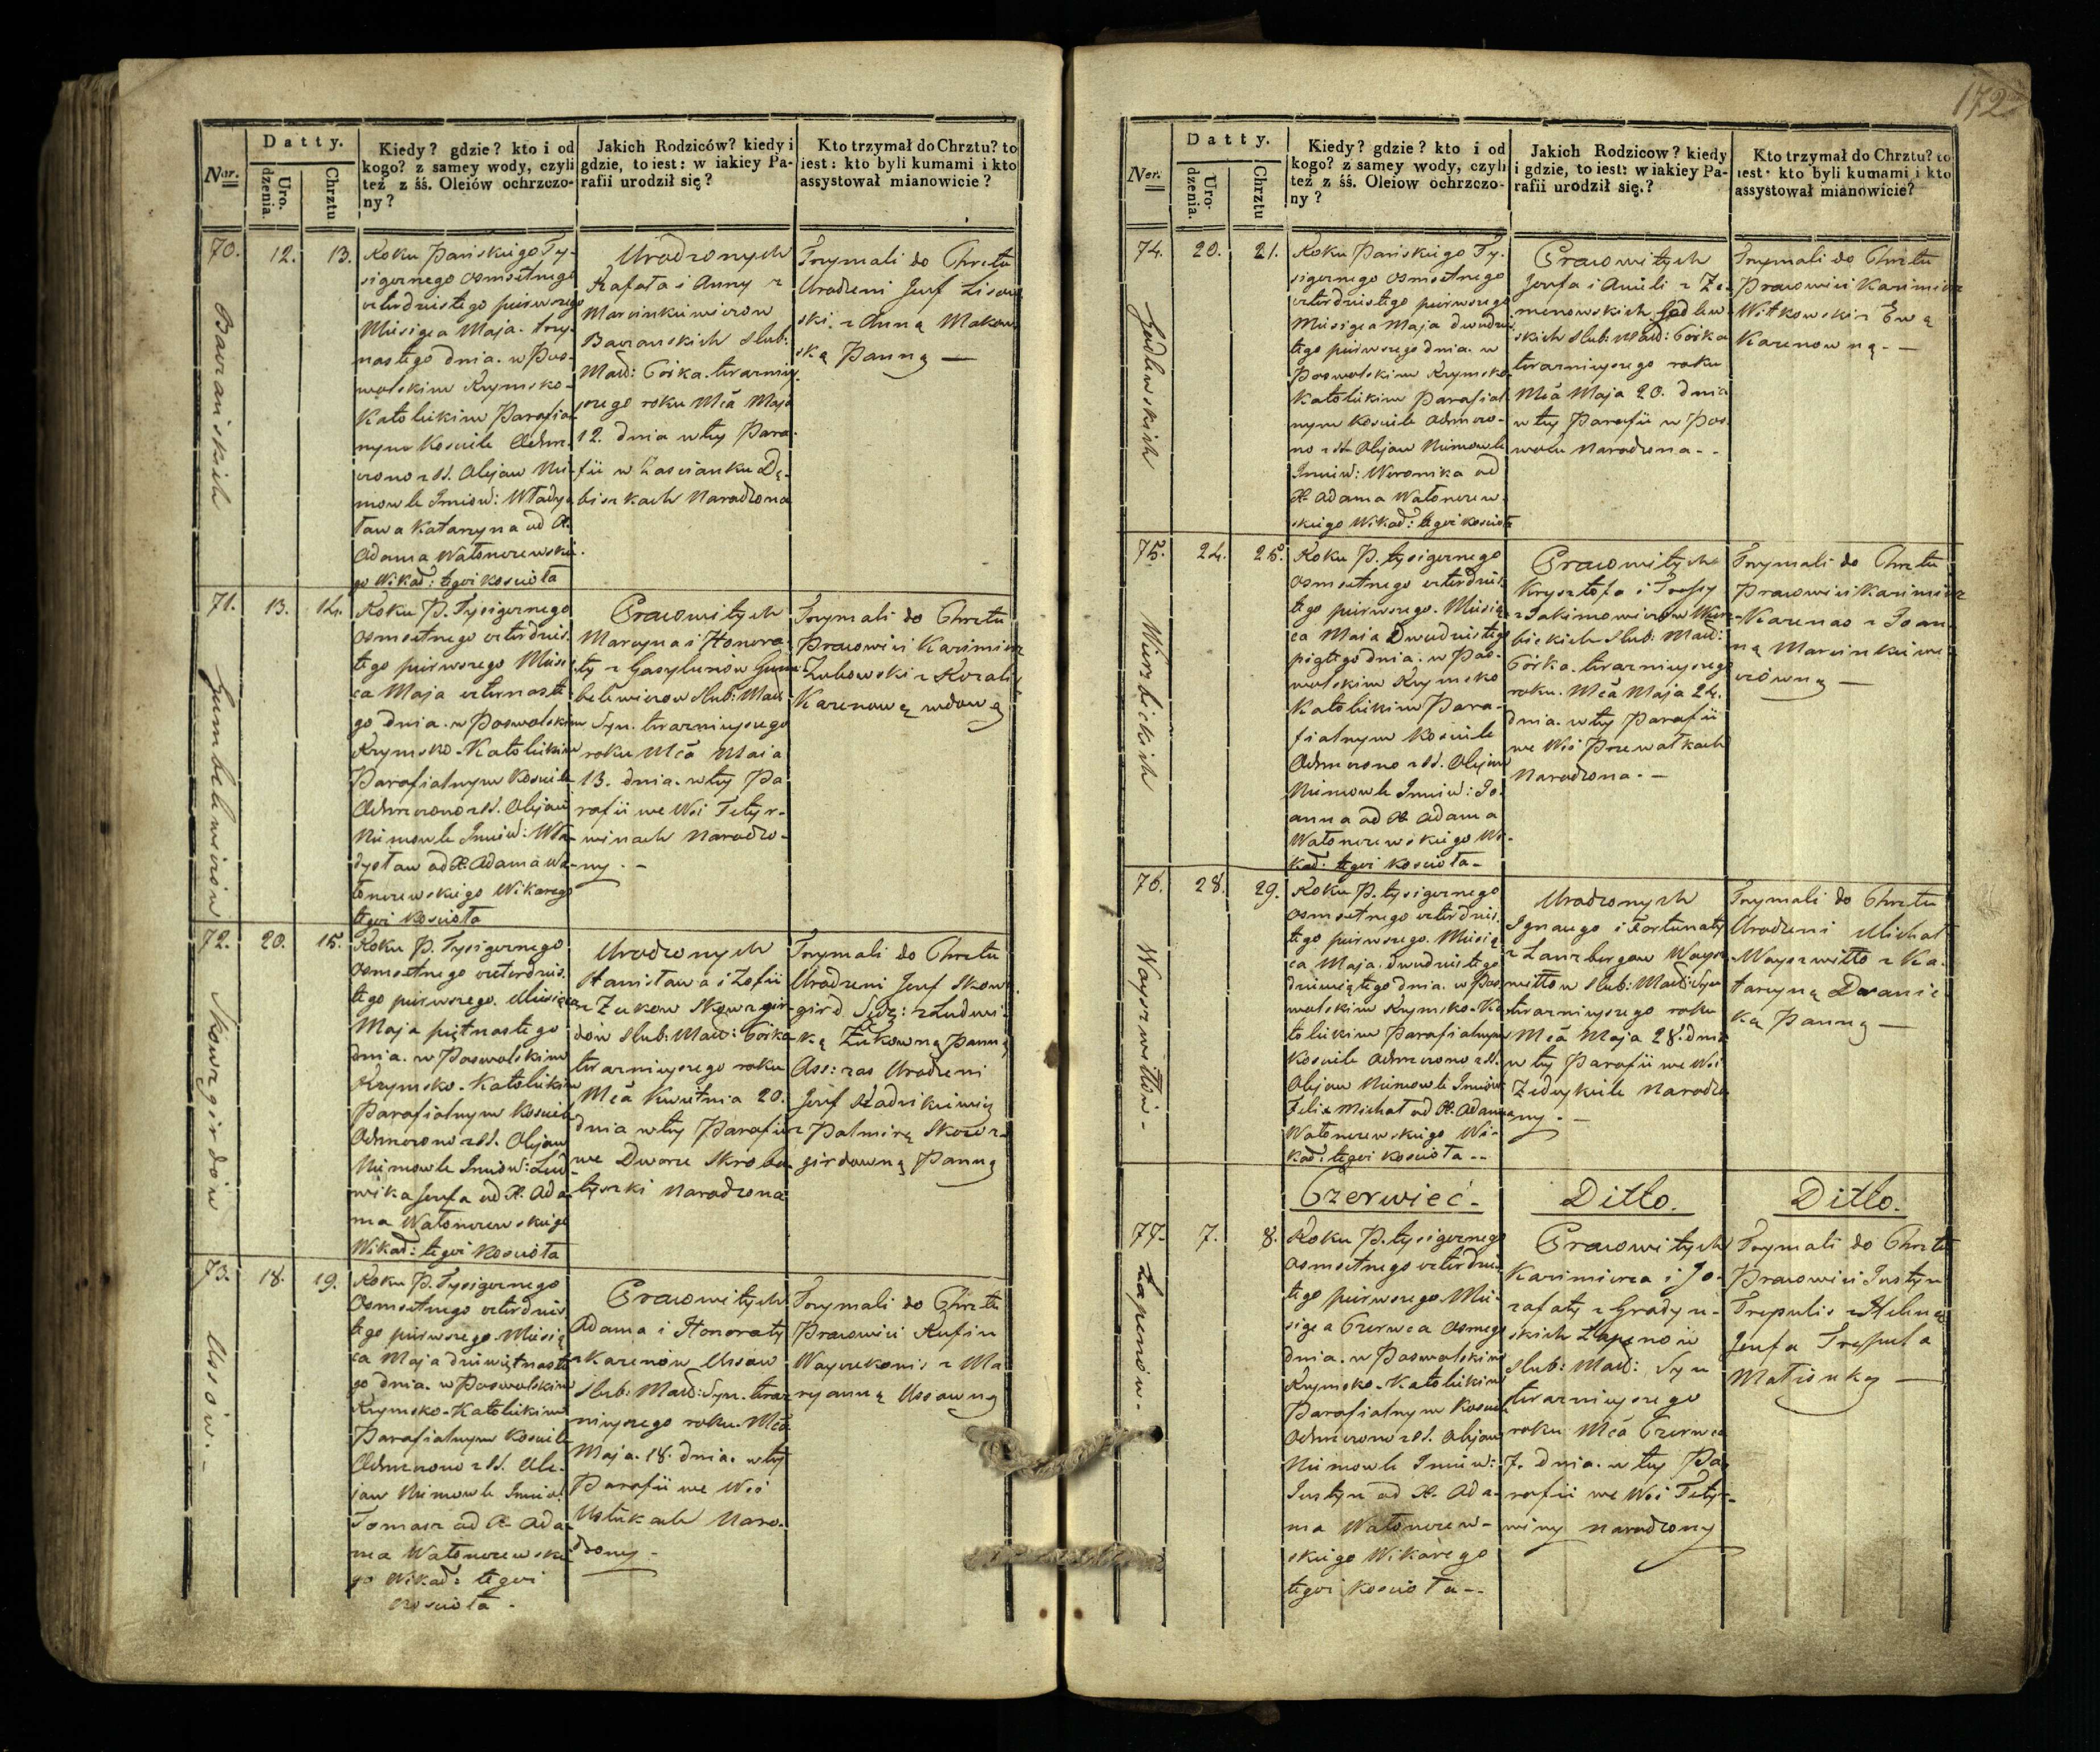 172
Ner.
Datty.
Urodzenia.
Chrztu
Kiedy? gdzie? kto i od
kogo? z samey wody, czyli
też z śś. Oleiów ochrzczo-
ny?
Jakich Rodziców? kiedy i
gdzie, to iest: w iakiey Pa-
rafii urodził się?
Kto trzymał do Chrztu? to
iest: kto byli kumami i kto
assystował mianowicie?
70. 12. 13.
Roku Pańskiego Ty-
siącznego osmsetnego
czterdziestego pierwszego
Miesiąca Maja trzy-
nastego dnia. w Pos-
wolskim Rzymsko-
Katolickim Parafial-
nym Kosciele Ochrz-
czono z SS. Olejow Nie-
mowle Imiow: Włady-
ława Katarzyna od X.
Adama Watonczewskie-
go Wikar: tegoż Koscioła
Urodzonych
Rafała i Anny z
Marcinkiewiczow
Slub:
Małż: Córka teraźniey-
szego roku Mca Maja
12. dnia w tey Para-
fii w Zascianku Dę-
biszkach Narodzona
Trzymali do Chrztu
Urodzeni Jozef Lisow-
ski z Anną Makow-
ską Panną —
71. 13. 14.
Roku P. Tysiącznego
osmsetnego czterdzies-
tego pierwszego Miesią-
ca Maja czternaste-
go dnia. w Poswolskim
Rzymsko-Katolickim
Parafialnym Kosciele
Ochrzczono z SS. Olejow
Niemowle Imiow: Wła-
dysław od X. Adama Wa-
tonczewskiego Wikarego
tegoż Koscioła
Gumbelewiczów
Pracowitych
Marcyna i Honora-
ty z Gasylunów Gum-
belewiczow Slub: Małż
Syn. teraźnieyszego
roku Mca Maia
13. dnia. w tey Pa-
rafii we Wsi Tetyr-
winach Narodzo-
ny. —
Trzymali do Chrztu
Pracowici Kazimierz
Zubowski z Rozalią
Karenową wdową
72. 20. 15.
Roku P. Tysiącznego
osmsetnego czterdzies-
tego pierwszego Miesiąca
Maja piętnastego
dnia. w Poswolskim
Rzymsko-Katolickim
Parafialnym Kosciele
Ochrzczono z SS. Olejow
Niemowle Imiow: Lud-
wika Jozefa od X. Ada-
ma Watonczewskiego
Wikar: tegoż Koscioła
Skowzgirdów
Urodzonych
Stanisława i Zofii
z Zukow Skowzgir-
dow Slub: Małż: Córka
teraźnieyszego roku
Mca Kwietnia 20.
dnia w tey Parafii
we Dworze Skroba-
tyszki Narodzona
Trzymali do Chrztu
Urodzeni Jozef Skowz-
gird Sędz: z Ludwi-
ką Zukowną Panną
Ass: zas Urodzeni
Jozef Radzikiewicz
z Palmirą Skowz-
girdowną Panną
73. 18. 19.
Roku P. Tysiącznego
Osmsetnego czterdzies-
tego pierwszego Miesią-
ca Maja dziewiętnaste-
go dnia. w Poswolskim
Rzymsko-Katolickim
Parafialnym Kosciele
Ochrzczono z SS. Ole-
jow Niemowle Imiow:
Tomasz od X. Ada-
ma Watonczewskie-
go Wikar: tegoż
Kosciola.
Ussów.—
Pracowitych
Adama i Honoraty
z Karenów Ussow
Slub: Małż: Syn. teraz-
nieyszego roku. Mca
Maja. 18. dnia. w tey
Parafii we Wsi
Ustukach Naro-
dzony —
Trzymali do Chrztu
Pracowici Rufin
z Ma-
ryanną Ussowną
Ner.
Datty.
Urodzenia.
Chrztu
Kiedy? gdzie? kto i od
kogo? z samey wody, czyli
też z śś. Oleiow ochrzczo-
ny?
Jakich Rodzicow? kiedy
i gdzie, to iest: w iakiey Pa-
rafii urodził się?
Kto trzymał do Chrztu? to
iest: kto byli kumami i kto
assystował mianowicie?
74. 20. 21.
Roku Pańskiego Ty-
siącznego osmsetnego
czterdziestego pierwszego
Miesiąca Maja dwudzies-
tego pierwszego dnia. w
Poswolskim Rzymsko
Katolickim Parafial-
nym Kosciele Ochrzczo-
no z SS. Olejow Niemowle
Imiow: Weronika od
X. Adama Watonczew-
skiego Wikar: tegoż Kosciola
Godlewskich
Pracowitych
Jozefa i Anieli z Ze-
menowskich Godlew-
skich Slub: Małż: Córka
teraznieyszego roku
Mca Maja 20. dnia
w tey Parafii w Pos-
wolu Narodzona. -
Trzymali do Chrztu
Pracowici Kazimierz
Witkowski z Ewą
Karenowną. —
75. 24. 25.
Roku P. tysiącznego
osmsetnego czterdzies-
tego pierwszego. Miesią-
ca Maia Dwudziestego
piątego dnia. w Pos-
wolskim Rzymsko
Katolickim Para-
fialnym Kosciele
Ochrzczono z SS. Olejow
Niemowle Imiow: Jo-
anna od X. Adama
Watonczewskiego Wi-
kar: tegoż Kosciola —
Pracowitych
Krysztofa i
z Jakimowiczow
Slub: Małż:
Córka. teraznieyszego
roku. Mca Maja 24.
dnia. w tey Parafii
we Wsi Przewałkach
Narodzona. —
Trzymali do Chrztu
Pracowici Kazimierz
Karenas z Joan-
ną Marcinkiewi-
czówną —
76. 28. 29.
Roku P. tysiącznego
osmsetnego czterdzies-
tego pierwszego. Miesią-
ca Maja. dwudziestego
dziewiątego dnia. w Pos-
wolskim Rzymsko-Ka-
tolickim Parafialnym
Kosciele Ochrzczono z SS.
Olejow Niemowle Imiow:
Felix Michał od X. Adama
Watonczewskiego Wi-
kar: tegoż Kosciola --
Wayszwiłłow -
Urodzonych
Ignacego i Fortunaty
z Lanzbergow Waysz-
wiłłow Slub: Małż: Syn
teraznieyszego roku
Mca Maja 28. dnia
w tey Parafii we Wsi
Zedeykiele Narodzo-
ny. —
Trzymali do Chrztu
Urodzeni Michał
Wayszwiłło z Ka-
tarzyną
Panną —
Czerwiec -
Ditto.
Ditto.
77. 7. 8.
Roku P. tysiącznego
osmsetnego czterdzies-
tego pierwszego Mie-
siąca Czerwca Osmego
dnia. w Poswolskim
Rzymsko-Katolickim
Parafialnym Kosciele
Ochrzczono z SS. Olejow
Niemowle Imiow:
Justyn od X. Ada-
ma Watonczew-
skiego Wikarego
tegoż Kosciola --
Łapenów -
Pracowitych
Kazimierza i Jo-
zafaty z Gradyn-
skich Łapenow
Slub: Małż: Syn
teraznieyszego
roku Mca Czerwca
7. dnia. w tey Pa-
rafii we Wsi Tetyr-
winy narodzony
Trzymali do Chrztu
Pracowici Justyn
Trepulis z Heleną
Jozefa Trepula
Małżonką —